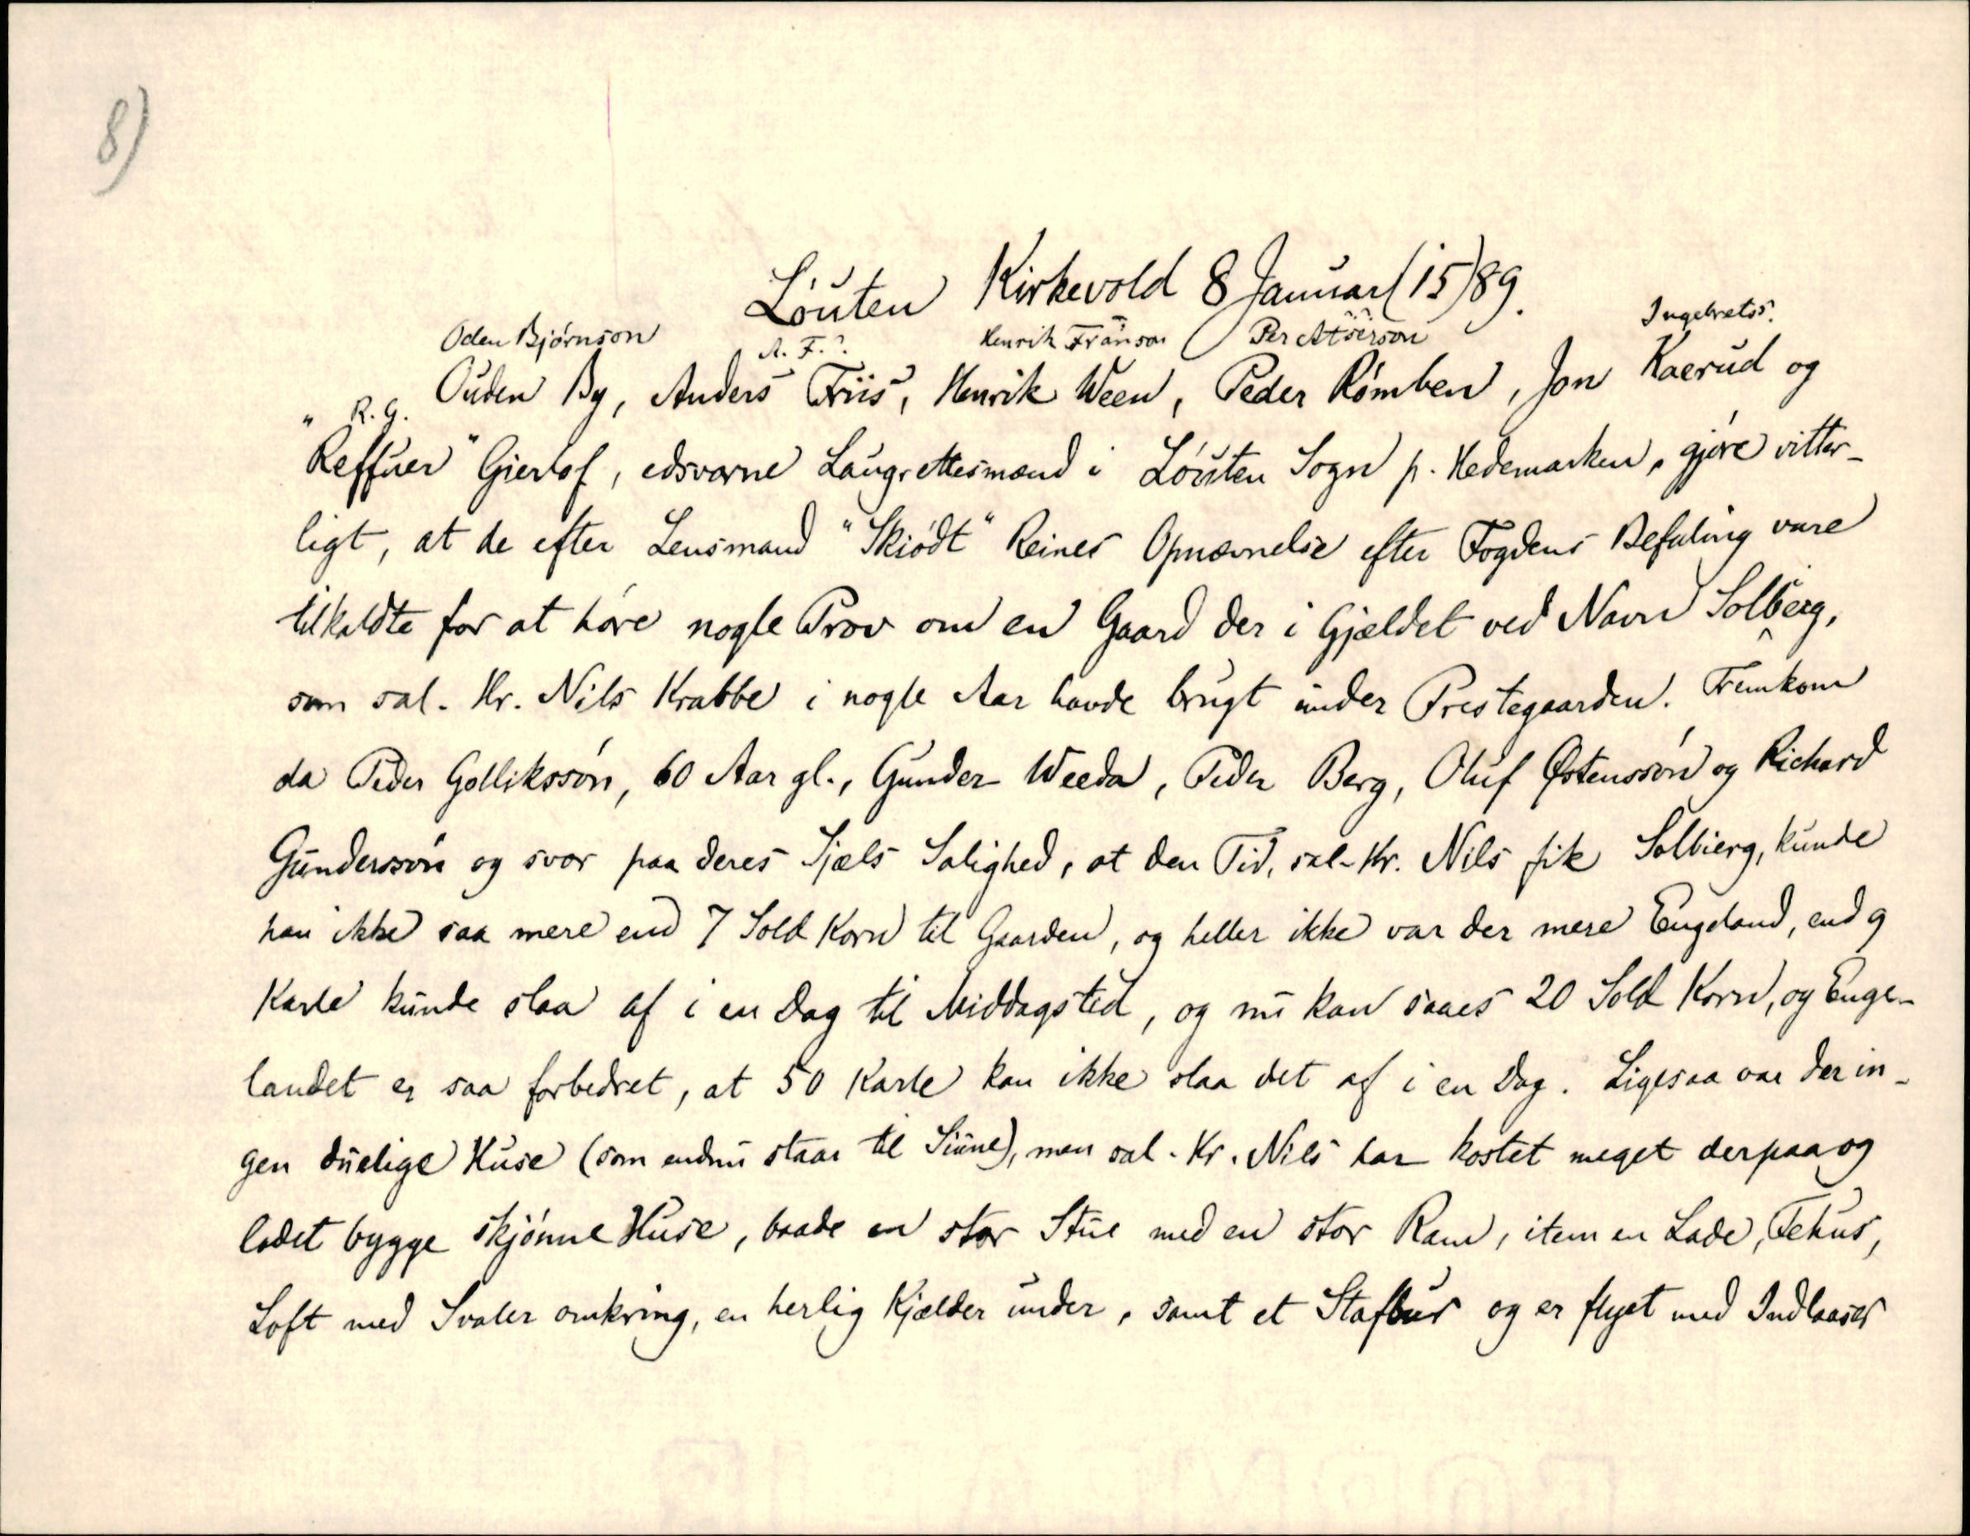 8)
Løuten Kirkevold 8 Januar (15)89.
Oden Bjørnson A. F.? Henrik Franson Per Atserson Ingebretss.
Ouden By, Anders Friis, Henrik Ween, Peder Rømben, Jon Kaerud og
R. G.
"Reffuer" Gierlof, edsvorne Laugrettesmænd i Løuten Sogn p. Hedemarken, gjøre vitter-
ligt, at de efter Lensmand "Skiødt" Reines Opnævnelse efter Fogdens Befaling vare
tilkaldte for at høre nogle Prov om en Gaard der i Gjældet ved Navn Solberg,
som sal. Hr. Nils Krabbe i nogle Aar havde brugt under Prestegaarden. Fremkom
da Peder Golliksson, 60 Aar gl., Gunder Weeda, Peder Berg, Oluf Østenssøn og Richard
Gunderssøn og svor paa deres Sjæls Salighed, at den Tid, sal. Hr. Nils fik Solbierg, kunde
han ikke saa mere end 7 Sold Korn til Gaarden, og heller ikke var der mere Engeland, end 9
Karle kunde slaa af i en Dag til Middagstid, og nu kan saaes 20 Sold Korn, og Enge-
landet er saa forbedret, at 50 Karle kan ikke slaa det af i en Dag. Ligesaa var der in-
gen duelige Huse (som endnu staar til Siune), men sal. Hr. Nils har kostet meget derpaa og
ladet bygge skjønne Huse, baade en stor Stue med en stor Ram, item en Lade, Fehus,
Loft med Svaler omkring, en herlig Kjælder under, samt et Stafbur og er flyet med Indlaaser